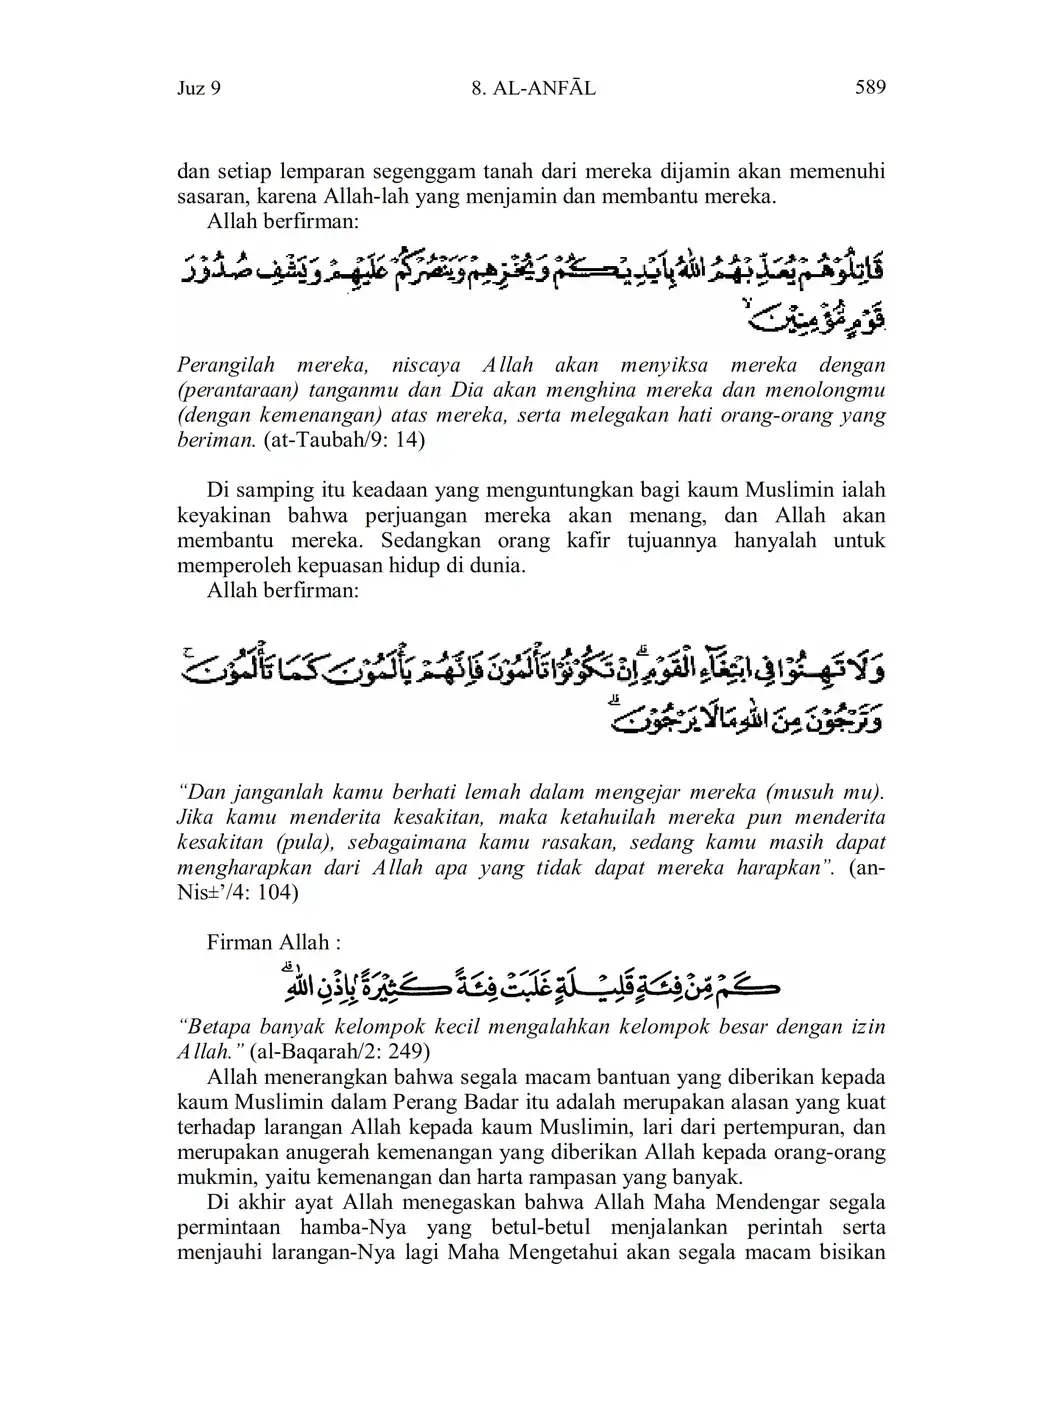 Juz 9 8. AL-ANFĀL 589
dan setiap lemparan segenggam tanah dari mereka dijamin akan memenuhi
sasaran, karena Allah-lah yang menjamin dan membantu mereka.
Allah berfirman:
قَاتِلُوْهُمْ يُعَذِّبْهُمُ اللّٰهُ بِاَيْدِيْكُمْ وَيُخْزِهِمْ وَيَنْصُرْكُمْ عَلَيْهِمْ وَيَشْفِ صُدُوْرَ
قَوْمٍ مُّؤْمِنِيْنَۙ
Perangilah mereka, niscaya Allah akan menyiksa mereka dengan
(perantaraan) tanganmu dan Dia akan menghina mereka dan menolongmu
(dengan kemenangan) atas mereka, serta melegakan hati orang-orang yang
beriman. (at-Taubah/9: 14)
Di samping itu keadaan yang menguntungkan bagi kaum Muslimin ialah
keyakinan bahwa perjuangan mereka akan menang, dan Allah akan
membantu mereka. Sedangkan orang kafir tujuannya hanyalah untuk
memperoleh kepuasan hidup di dunia.
Allah berfirman:
وَلَا تَهِنُوْا فِى ابْتِغَاۤءِ الْقَوْمِۗ اِنْ تَكُوْنُوْا تَأْلَمُوْنَ فَاِنَّهُمْ يَأْلَمُوْنَ كَمَا تَأْلَمُوْنَۚ
وَتَرْجُوْنَ مِنَ اللّٰهِ مَا لَا يَرْجُوْنَۗ
“Dan janganlah kamu berhati lemah dalam mengejar mereka (musuh mu).
Jika kamu menderita kesakitan, maka ketahuilah mereka pun menderita
kesakitan (pula), sebagaimana kamu rasakan, sedang kamu masih dapat
mengharapkan dari Allah apa yang tidak dapat mereka harapkan”. (an-
Nis±’/4: 104)
Firman Allah :
كَمْ مِّنْ فِئَةٍ قَلِيْلَةٍ غَلَبَتْ فِئَةً كَثِيْرَةً ۢبِاِذْنِ اللّٰهِۗ
“Betapa banyak kelompok kecil mengalahkan kelompok besar dengan izin
Allah.” (al-Baqarah/2: 249)
Allah menerangkan bahwa segala macam bantuan yang diberikan kepada
kaum Muslimin dalam Perang Badar itu adalah merupakan alasan yang kuat
terhadap larangan Allah kepada kaum Muslimin, lari dari pertempuran, dan
merupakan anugerah kemenangan yang diberikan Allah kepada orang-orang
mukmin, yaitu kemenangan dan harta rampasan yang banyak.
Di akhir ayat Allah menegaskan bahwa Allah Maha Mendengar segala
permintaan hamba-Nya yang betul-betul menjalankan perintah serta
menjauhi larangan-Nya lagi Maha Mengetahui akan segala macam bisikan